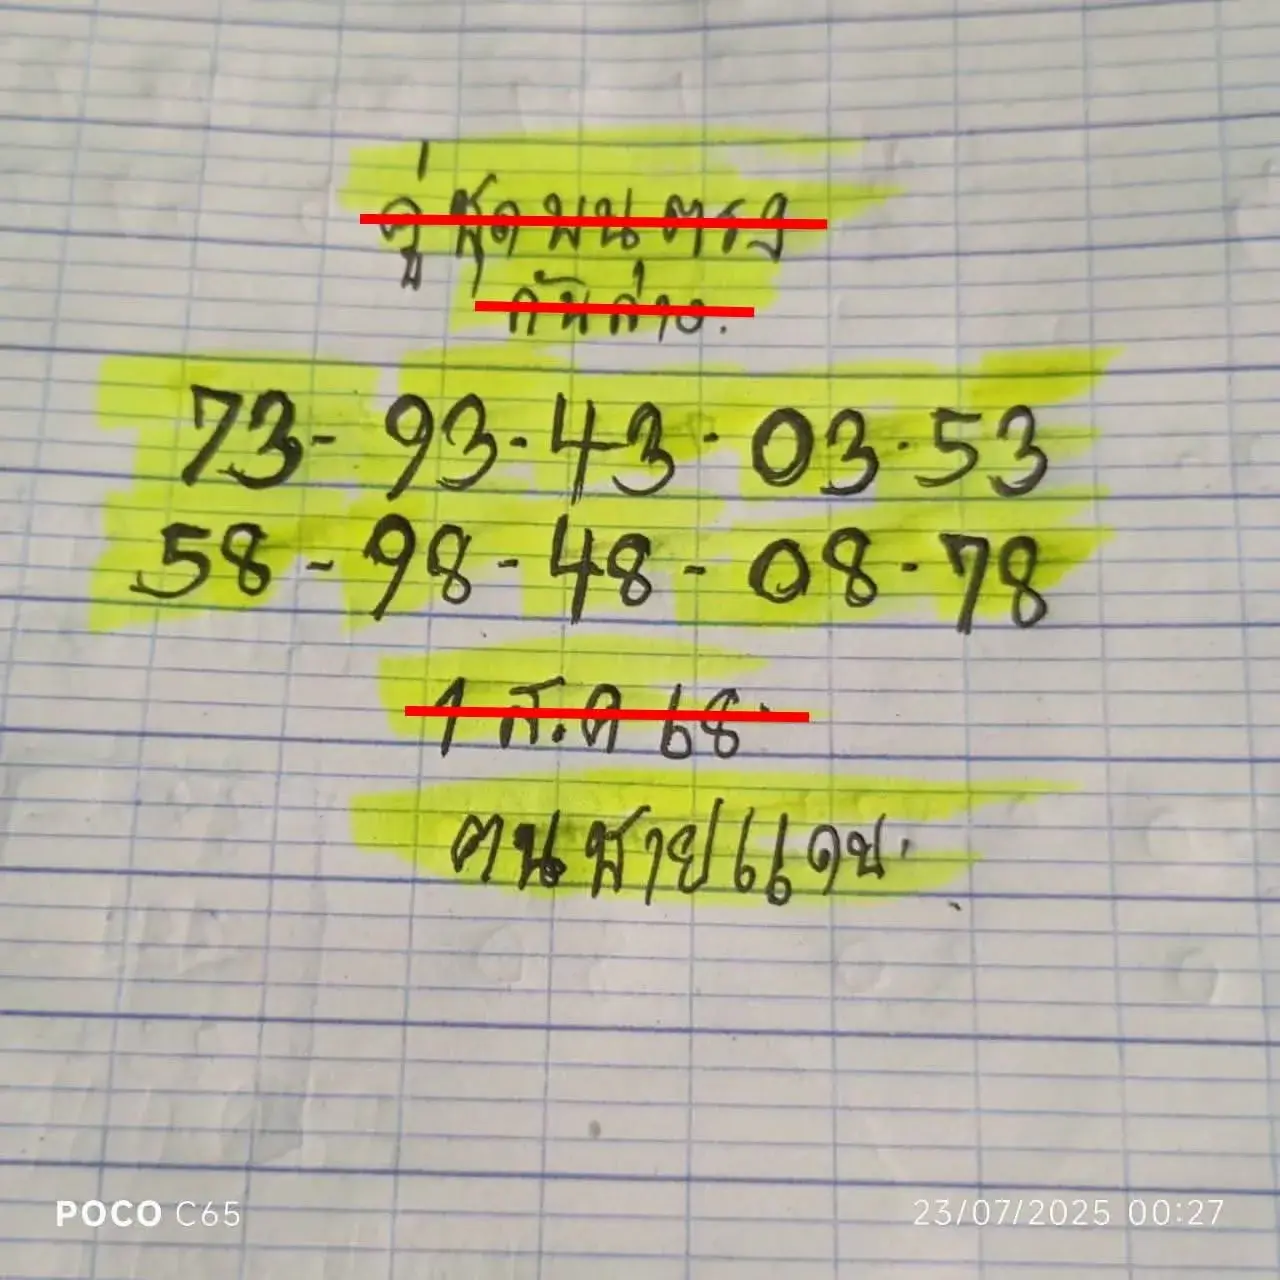 คู่ชุดบนตรง
กันล่าง.
73-93-43-03-53
58-98-48-08-78
1 ส.ค 68
ฅนชายแดน.
POCO C65
23/07/2025 00:27